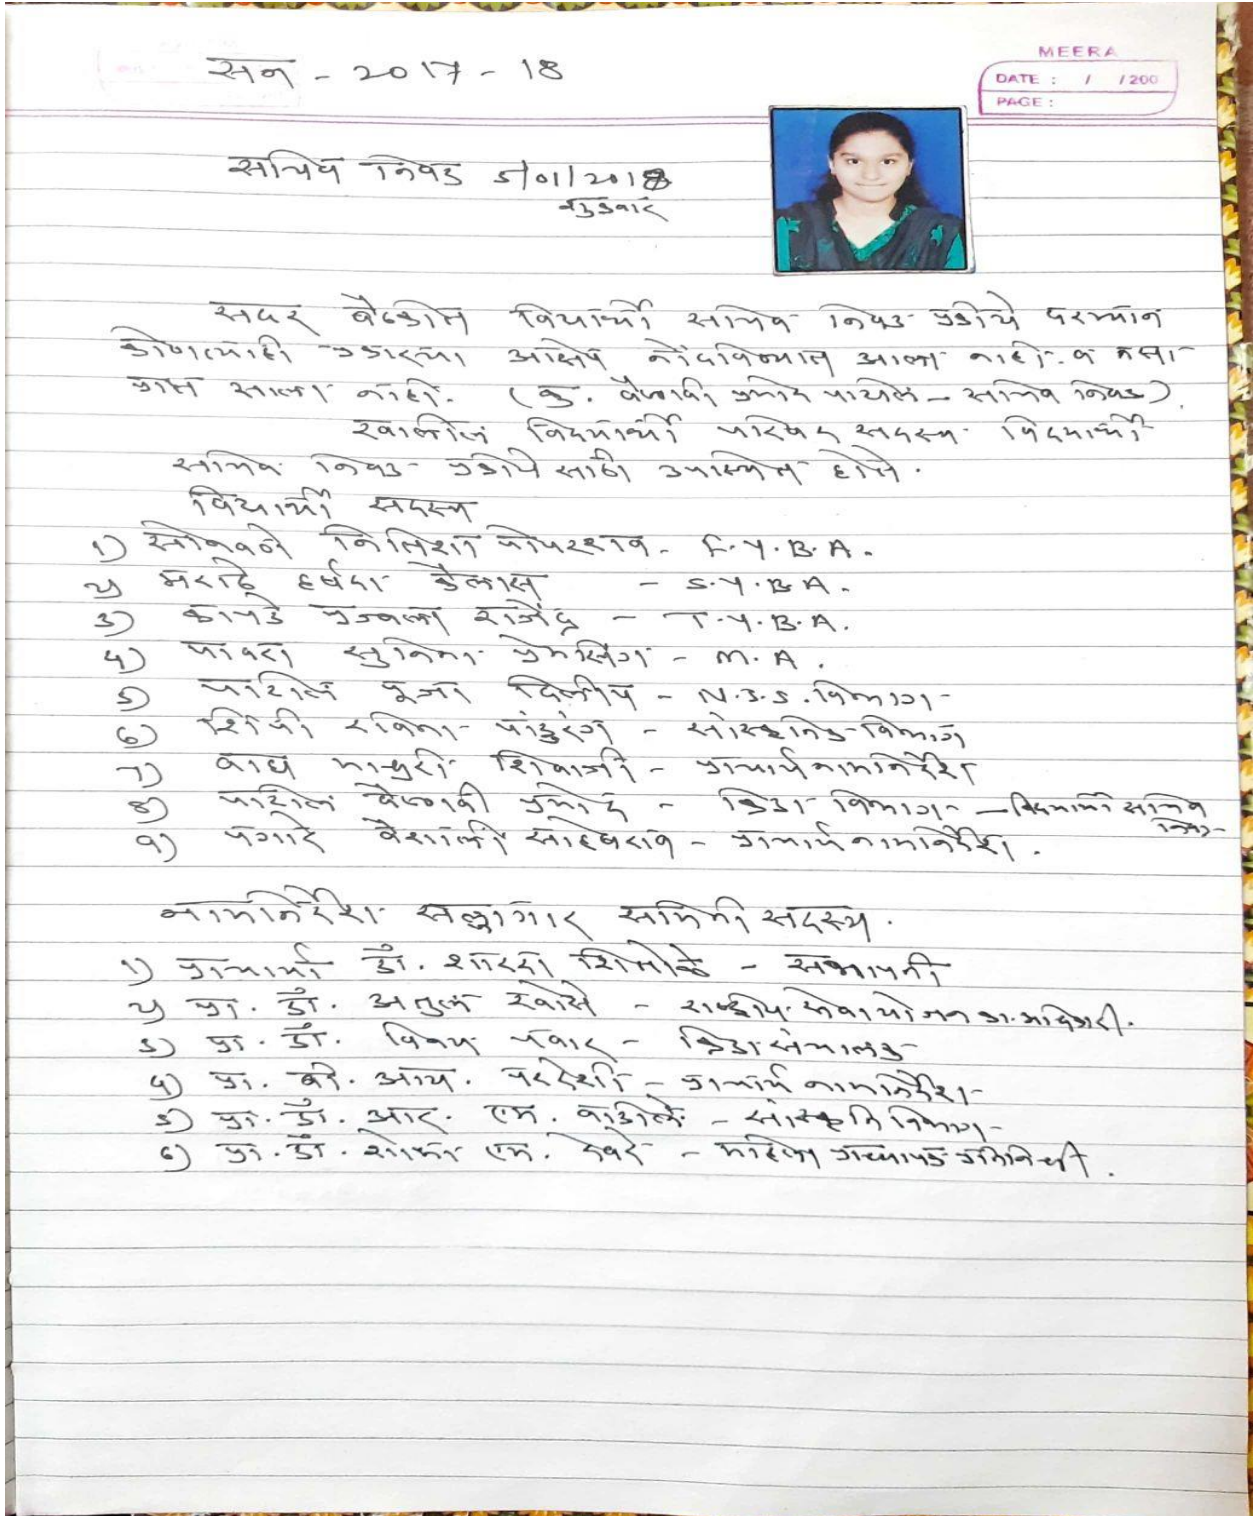 सन - 2017 - 18
MEERA
DATE : / /200
PAGE :
सचिव निवड 5/01/2018
शुक्रवार
सदर बैठकीत विद्यार्थी सचिव निवड प्रक्रीये दरम्यान
कोणत्याही प्रकारचा आक्षेप नोंदविण्यात आला नाही. व तसा
प्राप्त झाला नाही. (कु. वैष्णवी प्रमोद पाटील - सचिव निवड).
खालील विद्यार्थी परिषद सदस्य विद्यार्थी
सचिव निवड प्रक्रीये साठी उपस्थित होते.
विद्यार्थी सदस्य
1) सोनवणे निलिशा - F.Y.B.A.
2) मराठे हर्षदा कैलास - S.Y.B.A.
3) कापडे प्रज्वला राजेंद्र - T.Y.B.A.
4) पावरा सुनिता प्रेमसिंग - M.A.
5) पाटील पूजा दिलीप - N.S.S. विभाग
6) शिंपी रविना पांडुरंग - सांस्कृतिक विभाग
7) वाघ माधुरी शिवाजी - प्राचार्य नामनिर्देश
8) पाटील वैष्णवी प्रमोद - क्रिडा विभाग - विद्यार्थी सचिव
निवड
9) पगारे वैशाली साहेबराव - प्राचार्य नामनिर्देश.
नामनिर्देश सल्लागार समिती सदस्य.
1) प्राचार्या डॉ. शारदा शितोळे - सभापती
2) प्रा. डॉ. अतुल खोसे - राष्ट्रीय सेवा योजना का. अधिकारी.
3) प्रा. डॉ. विजय पवार - क्रिडा संचालक
4) प्रा. बी. आय. परदेशी - प्राचार्य नामनिर्देश
5) प्रा. डॉ. आर. एम. वाडीले - सांस्कृति विभाग
6) प्रा. डॉ. शोभा एम. देवरे - महिला प्राध्यापक प्रतिनिधी.